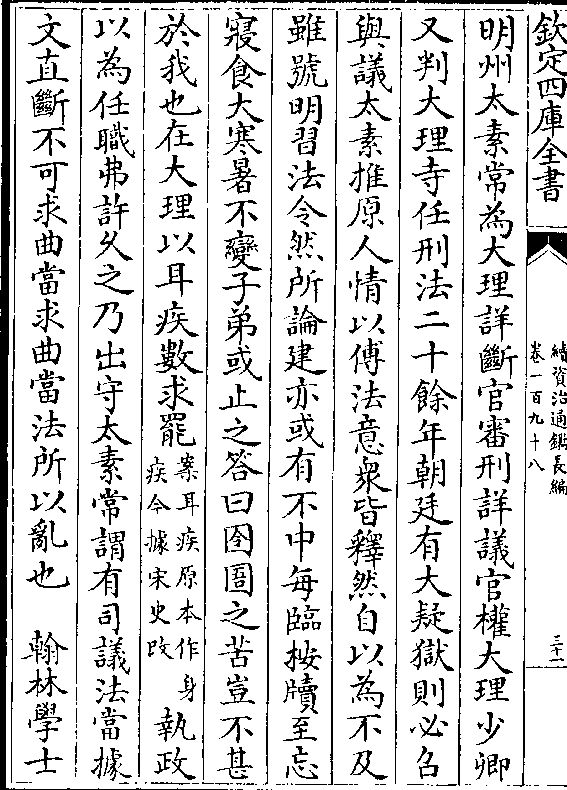 欽定四庫全書
續資治通鑑長編
卷一百九十八
三十一
明州太素常為大理詳斷官審刑詳議官權大理少卿
又判大理寺任刑法二十餘年朝廷有大疑獄則必召
與議太素推原人情以傅法意衆皆釋然自以為不及
雖號明習法令然所論建亦或有不中每臨按牘至忘
寢食大寒暑不變子弟或止之答曰囹圄之苦豈不甚
於我也在大理以耳疾數求罷
案耳疾原本作身
疾今據宋史改
執政
以為任職弗許乆之乃出守太素常謂有司議法當據
文直斷不可求曲當求曲當法所以亂也　翰林學士